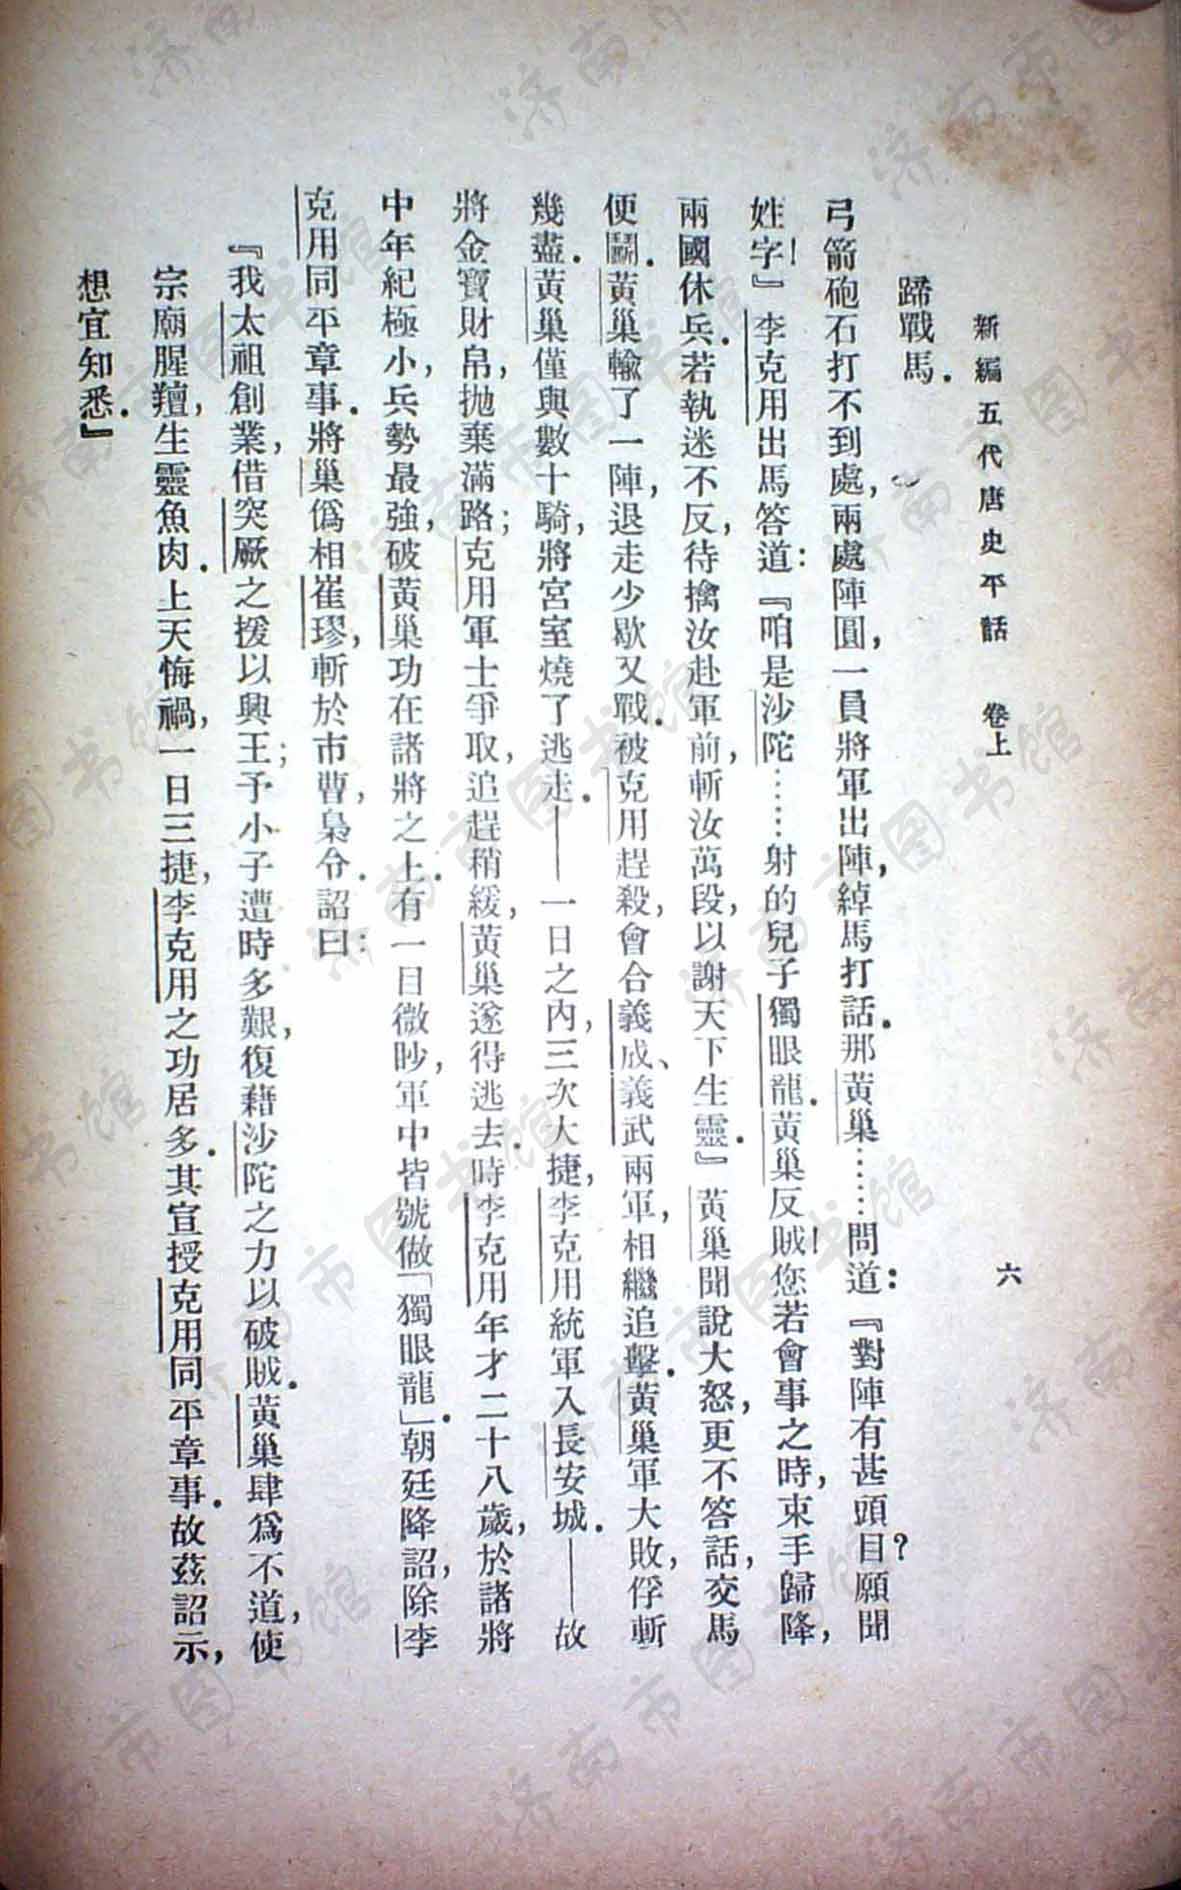 新編五代唐史平話　卷上
六
蹄戰馬．
弓箭砲石打不到處，兩處陣圓，一員將軍出陣，綽馬打話．那黃巢……問道：『對陣有甚頭目？願聞
姓字！』李克用出馬答道：『咱是沙陀……射的兒子獨眼龍．黃巢反賊！您若會事之時，束手歸降，
兩國休兵．若執迷不反，待擒汝赴軍前，斬汝萬段，以謝天下生靈．』黃巢聞說大怒，更不答話，交馬
便鬭．黃巢輸了一陣，退走少歇又戰．被克用趕殺，會合義成、義武兩軍，相繼追擊．黃巢軍大敗，俘斬
幾盡．黃巢僅與數十騎，將宮室燒了逃走．——一日之內，三次大捷，李克用統軍入長安城．——故
將金寶財帛，拋棄滿路；克用軍士爭取，追趕稍緩，黃巢遂得逃去．時李克用年才二十八歲，於諸將
中年紀極小，兵勢最強，破黃巢功在諸將之上．有一目微眇，軍中皆號做「獨眼龍」．朝廷降詔，除李
克用同平章事．將巢僞相崔璆，斬於市曹，梟令．詔曰：
『我太祖創業，借突厥之援以興王；予小子遭時多艱，復藉沙陀之力以破賊．黃巢肆爲不道，使
宗廟腥羶，生靈魚肉．上天悔禍，一日三捷，李克用之功居多．其宣授克用同平章事．故茲詔示，
想宜知悉．』
济南市图书馆